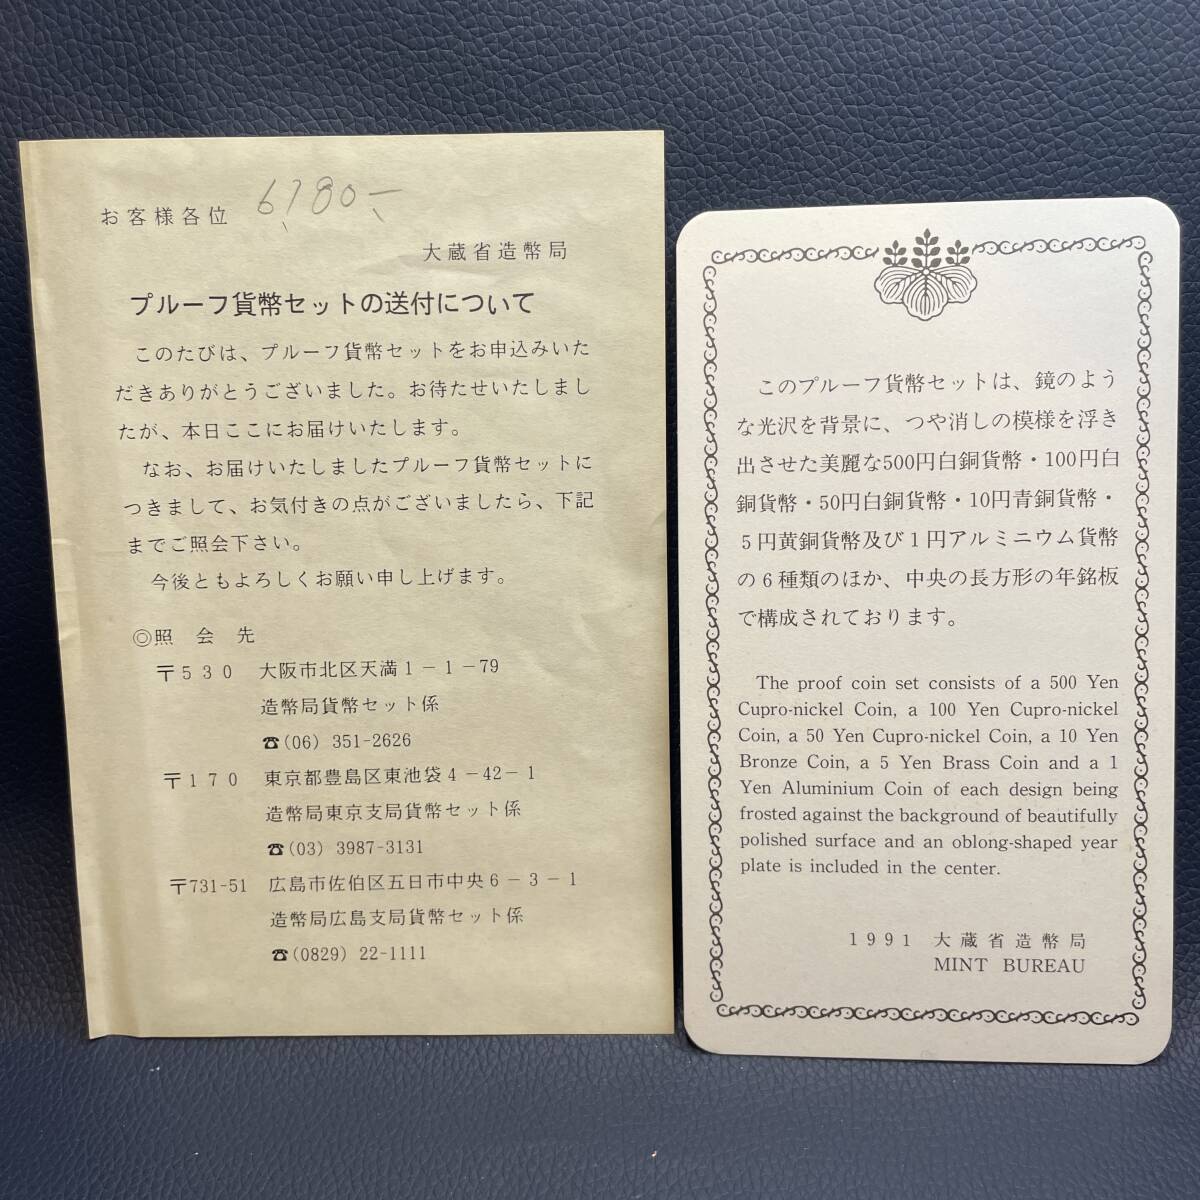 6,780-
お客様各位
大蔵省造幣局
プルーフ貨幣セットの送付について
このたびは、プルーフ貨幣セットをお申込みいた
だきありがとうございました。お待たせいたしまし
たが、本日ここにお届けいたします。
なお、お届けいたしましたプルーフ貨幣セットに
つきまして、お気付きの点がございましたら、下記
までご照会下さい。
今後ともよろしくお願い申し上げます。
◎照 会 先
〒530 大阪市北区天満1-1-79
造幣局貨幣セット係
☎(06) 351-2626
〒170 東京都豊島区東池袋4-42-1
造幣局東京支局貨幣セット係
☎(03) 3987-3131
〒731-51 広島市佐伯区五日市中央6-3-1
造幣局広島支局貨幣セット係
☎(0829) 22-1111
このプルーフ貨幣セットは、鏡のよう
な光沢を背景に、つや消しの模様を浮き
出させた美麗な500円白銅貨幣・100円白
銅貨幣・50円白銅貨幣・10円青銅貨幣・
5円黄銅貨幣及び1円アルミニウム貨幣
の6種類のほか、中央の長方形の年銘板
で構成されております。
The proof coin set consists of a 500 Yen
Cupro-nickel Coin, a 100 Yen Cupro-nickel
Coin, a 50 Yen Cupro-nickel Coin, a 10 Yen
Bronze Coin, a 5 Yen Brass Coin and a 1
Yen Aluminium Coin of each design being
frosted against the background of beautifully
polished surface and an oblong-shaped year
plate is included in the center.
1991 大蔵省造幣局
MINT BUREAU